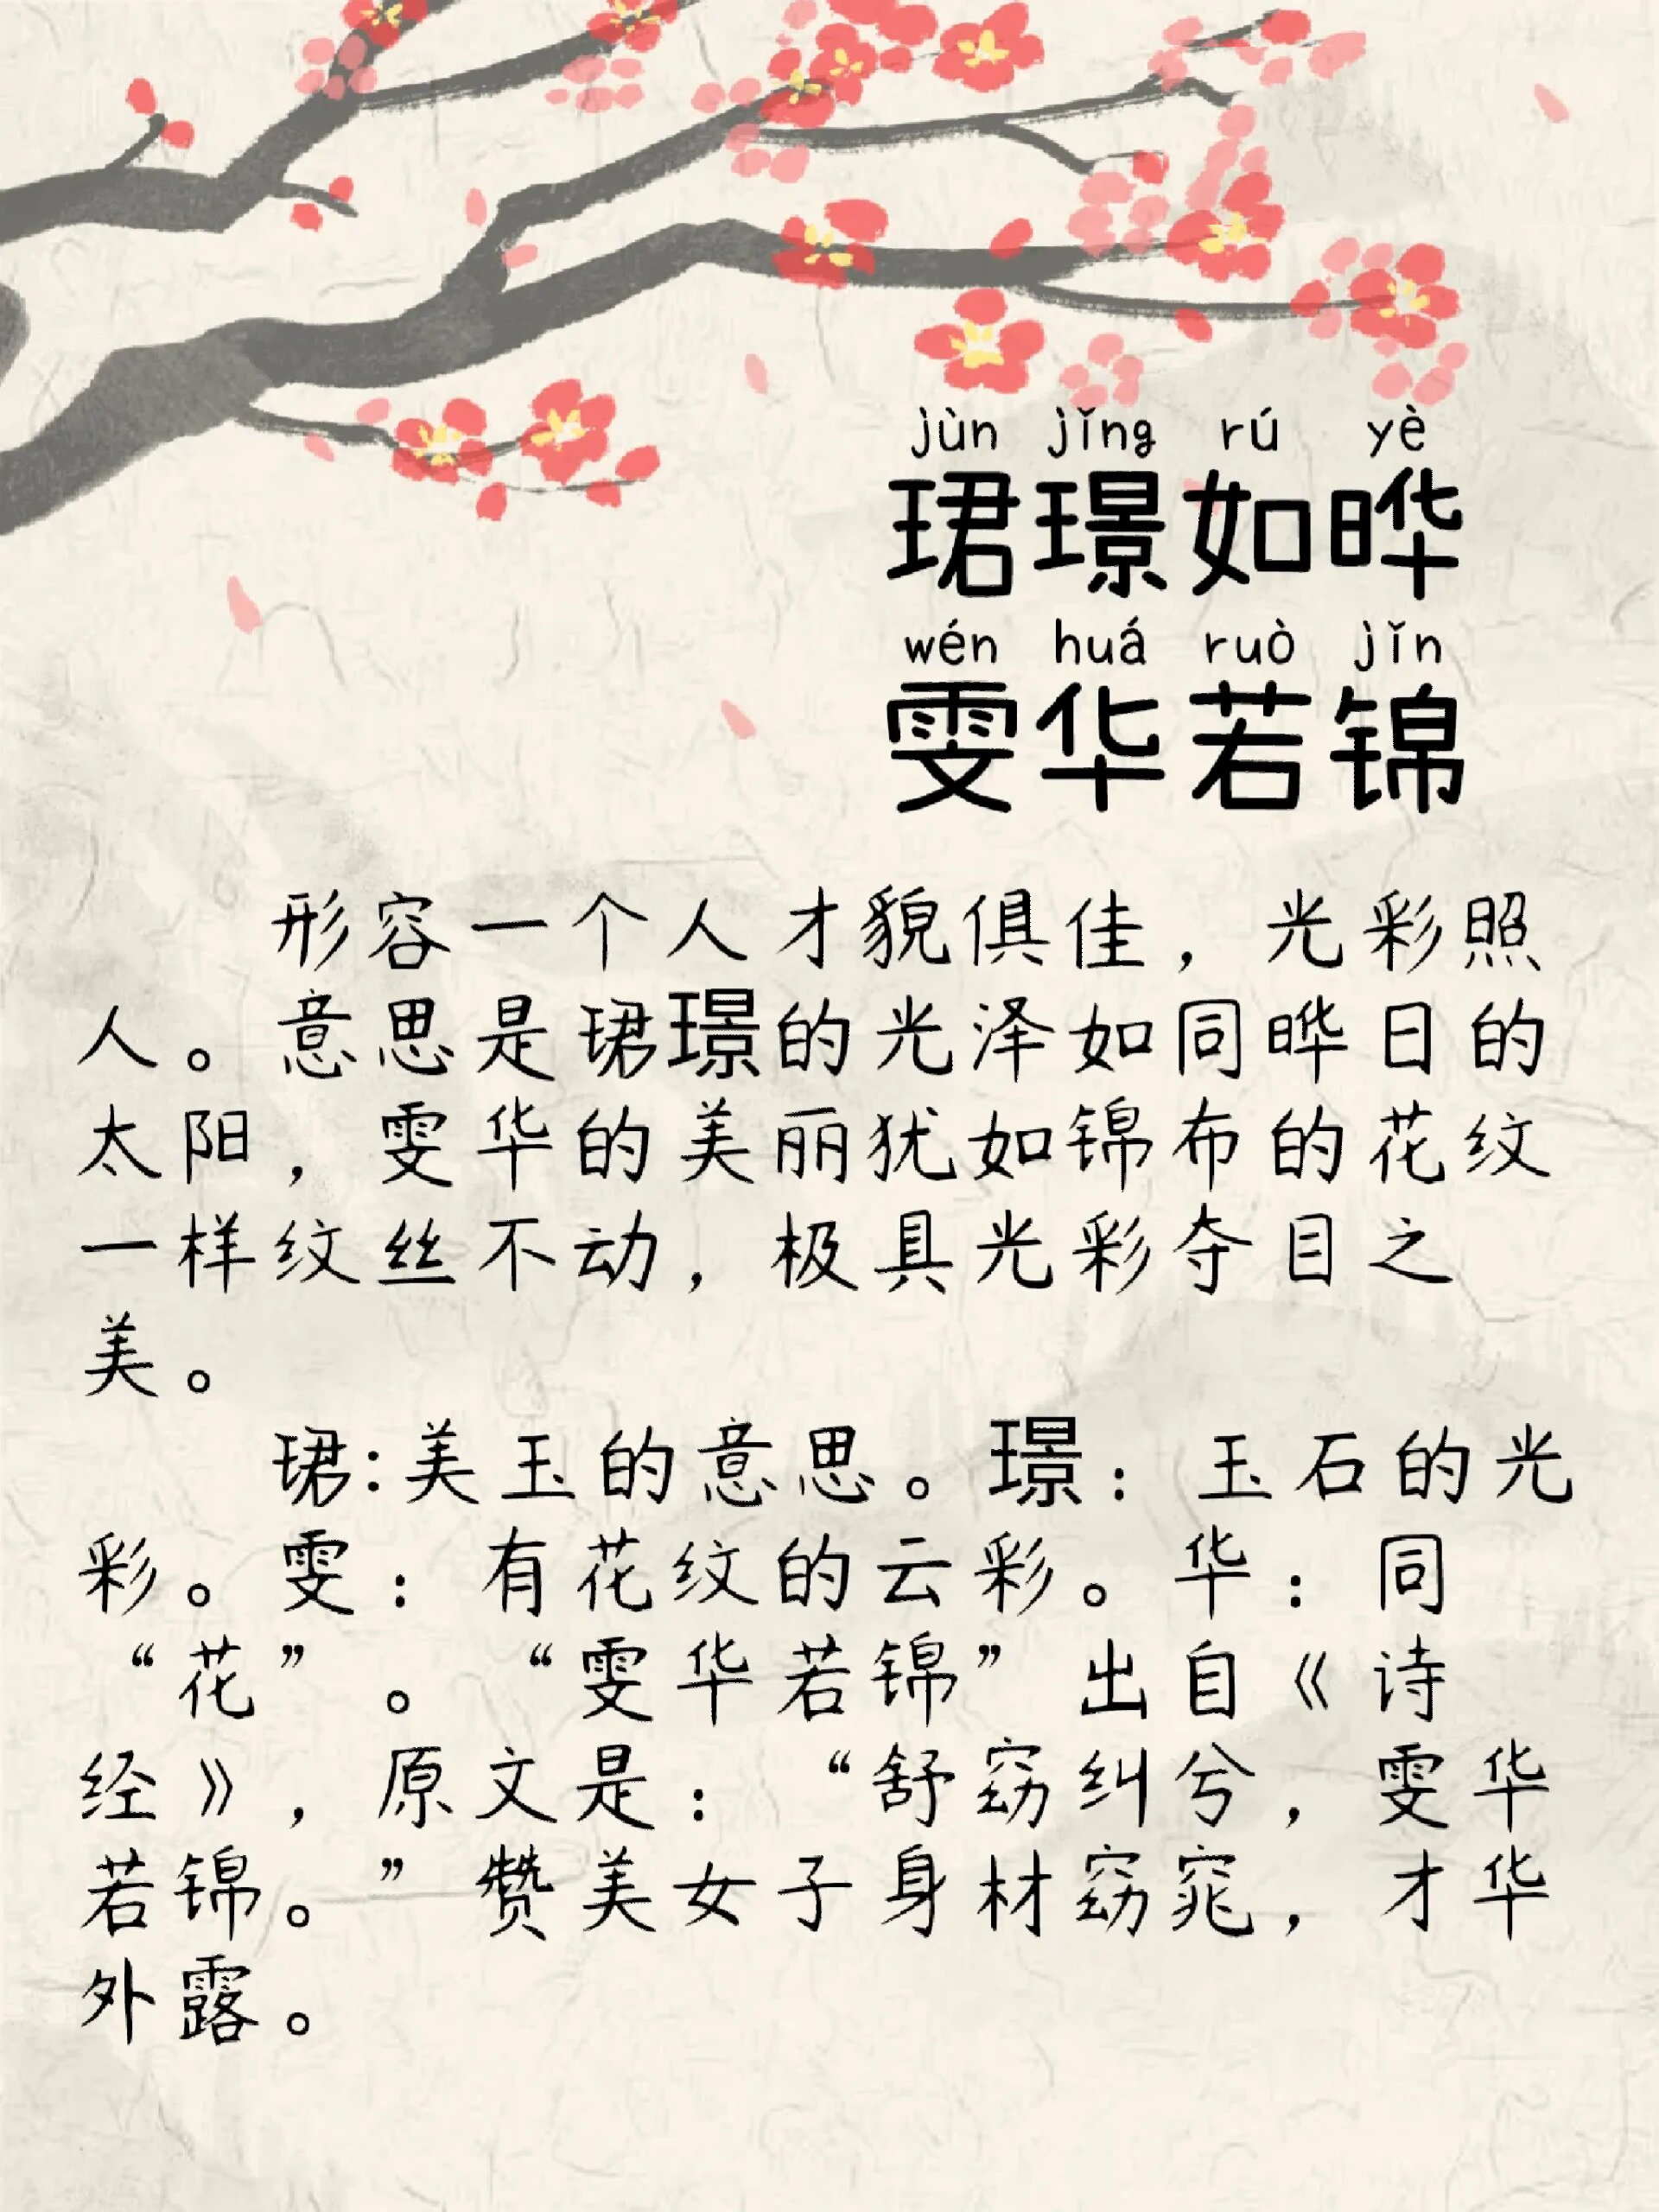 jùn jǐng rú yè
珺璟如晔
wén huá ruò jǐn
雯华若锦
形容一个人才貌俱佳，光彩照
人。意思是珺璟的光泽如同晔日的
太阳，雯华的美丽犹如锦布的花纹
一样纹丝不动，极具光彩夺目之
美。
珺:美玉的意思。璟：玉石的光
彩。雯：有花纹的云彩。华：同
“花”。“雯华若锦”出自《诗
经》，原文是：“舒窈纠兮，雯华
若锦。”赞美女子身材窈窕，才华
外露。